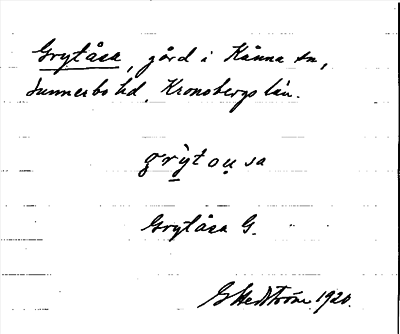 Grytåsa, gård i Kånna sn,
Sunnerbo hd, Kronobergs län.
grỳtou̯sa
Grytåsa G.
G Hedström 1920.